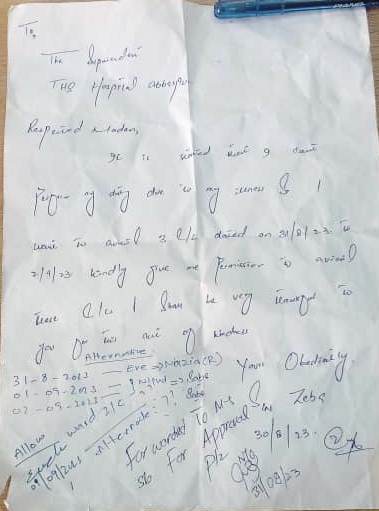 To,
The
THQ Hospital
Respected Madam,
It is stated that I can't
Perform my duty due to my illness & I
want to avail 3 C/L dated on 31/8/23 to
2/9/23 kindly give me Permission to avail
these C/Ls I shall be very thankful to
you for this act of kindness
Alternative
31-8-2023 Eve → Nazia (R)
01-09-2023 Night → Saba
02-09-2023 " → Saba
Yours Obediently.
Zeba
30/8/23
Allow
ward I/C
Alternate ??
Forwarded To M.S
Sb For Approval
Plz